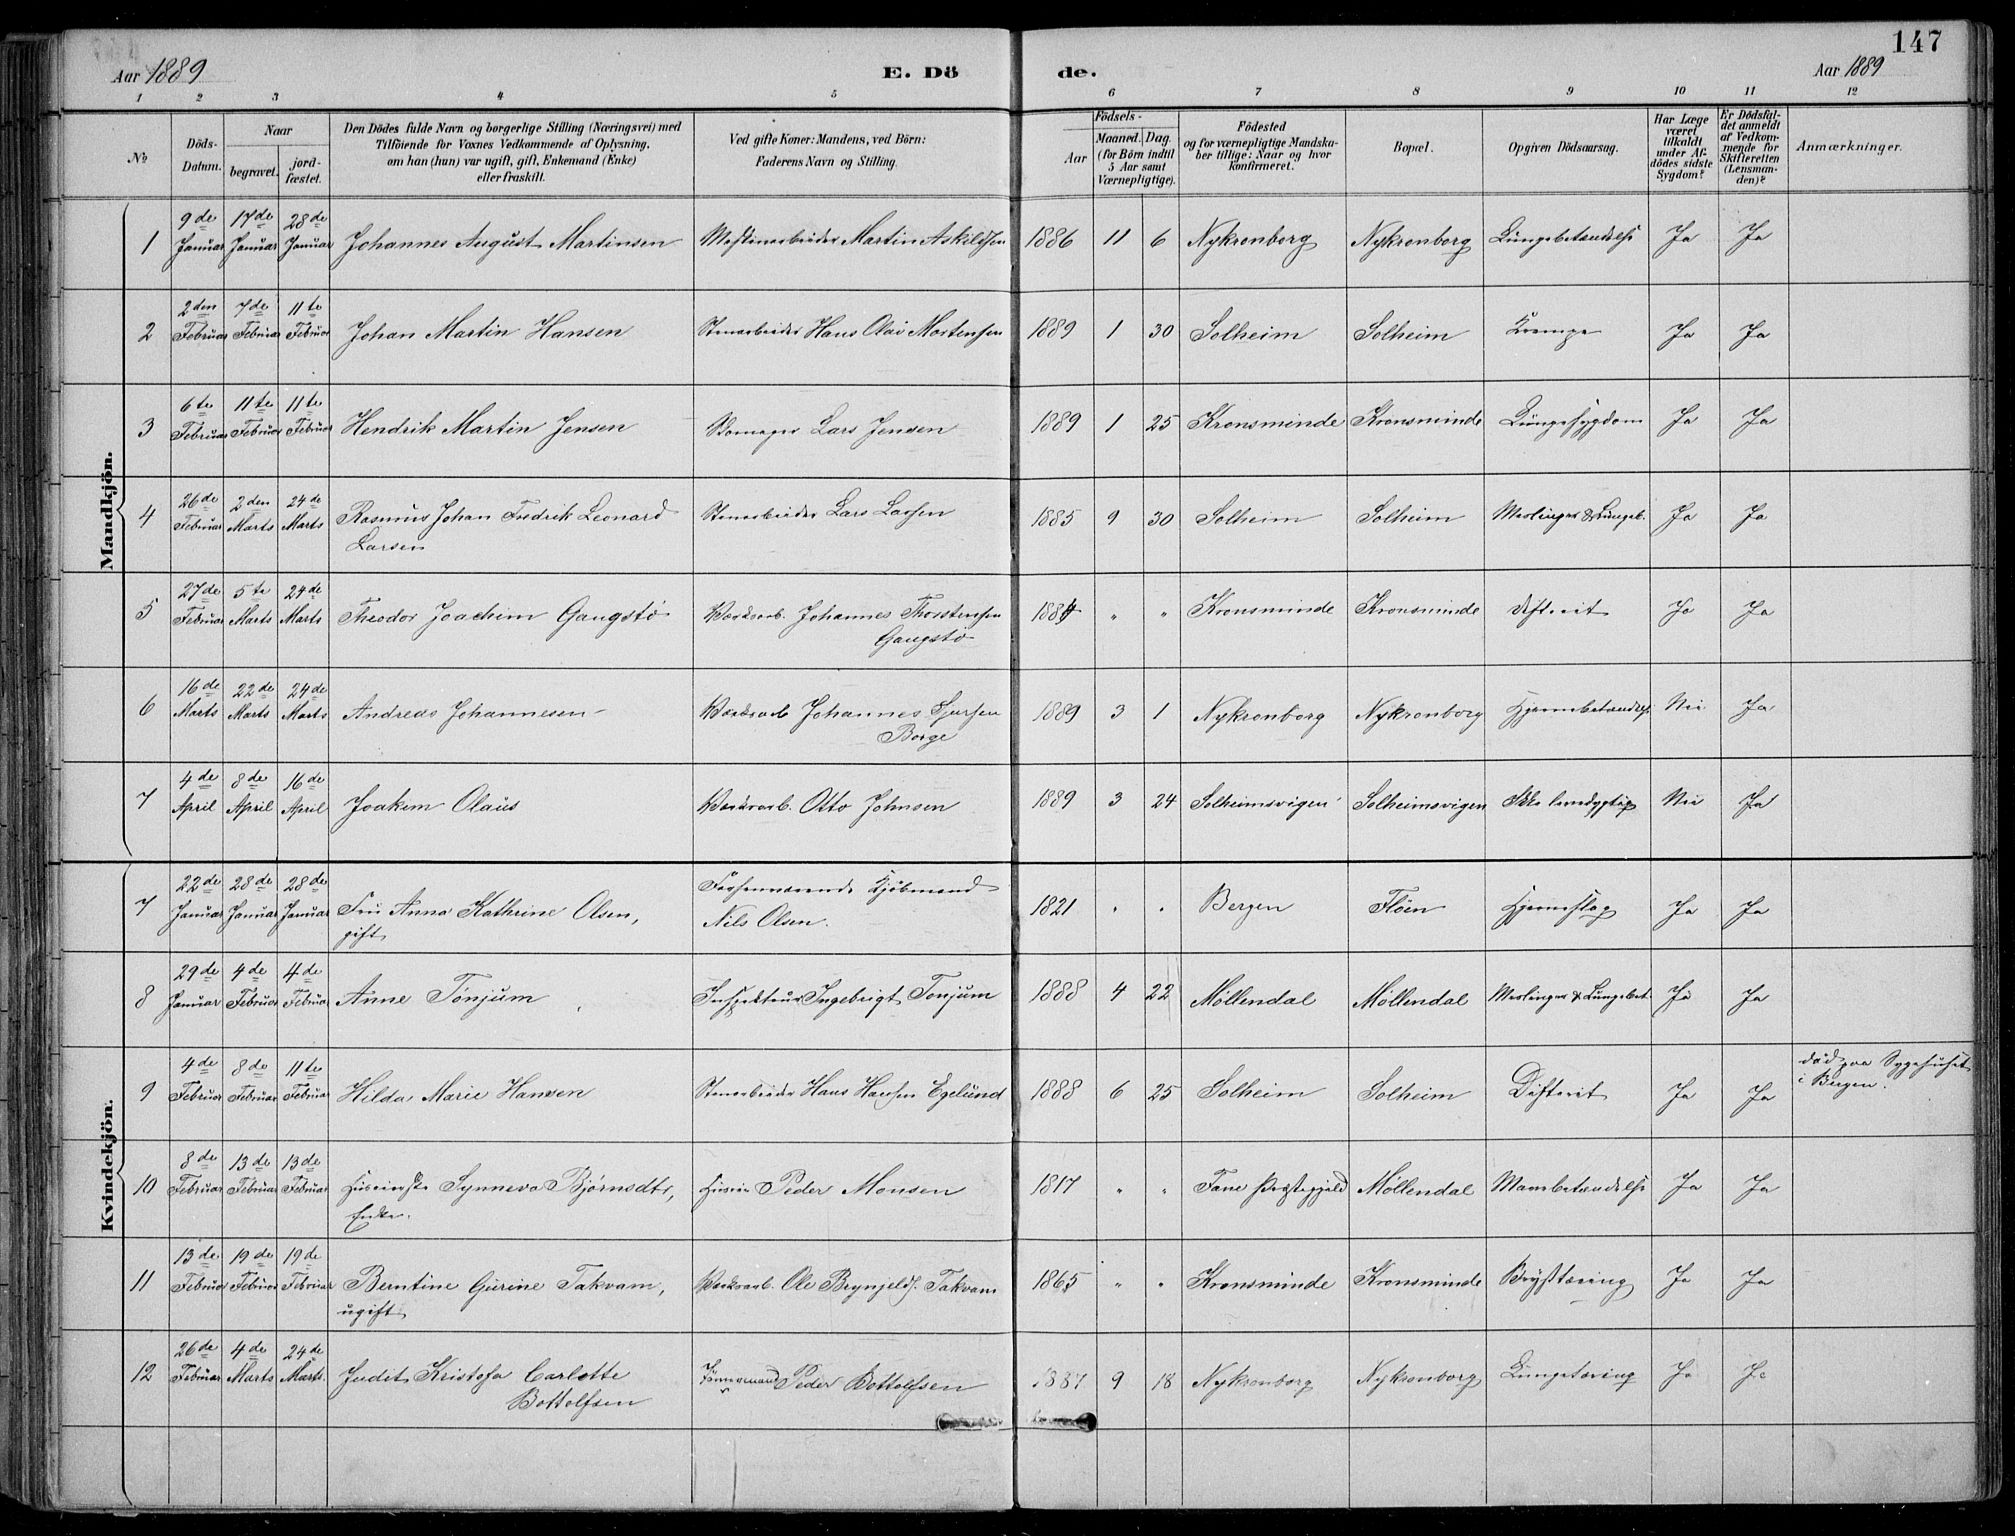 147
Aar 1889
E. Dö
de.
Aar 1889
1 2 3 4 5 6 7 8 9 10 11 12
№
Döds-
Datum.
Naar
begravet.
jord-
fæstet.
Den Dödes fulde Navn og borgerlige Stilling (Næringsvei) med
Tilföiende for Voxnes Vedkommende af Oplysning,
om han (hun) var ugift, gift, Enkemand (Enke)
eller fraskilt.
Ved gifte Koner: Mandens, ved Börn:
Faderens Navn og Stilling.
Födsels-
Aar
Maaned. Dag.
(for Börn indtil
5 Aar samt
Værnepligtige).
Födested
og for værnepligtige Mandska-
ber tillige: Naar og hvor
konfirmeret.
Bopæl.
Opgiven Dödsaarsag.
Har Læge
været
tilkaldt
under Af-
dödes sidste
Sygdom?
Er Dödsfal-
det anmeldt
af Vedkom-
mende for
Skifteretten
(Lensman-
den)?
Anmærkninger.
Mandkjön.
9de 17de 28de
1 Januar Januar Januar Johannes August Martinsen Martin Askildsen 1886 11 6 Nykronborg Nykronborg Lungebetændelse Ja Ja
2den 7de 11te
2 Februar Februar Februar Johan Martin Hansen Stenarbeider Hans Olai Mortensen 1889 1 30 Solheim Solheim Krampe Ja Ja
6te 11te 11te
3 Februar Februar Februar Hendrik Martin Jensen Skomager Lars Jensen 1889 1 25 Kronsminde Kronsminde Lungesygdom Ja Ja
26de 2den 24de
4 Februar Marts Marts Rasmus Johan Fredrik Leonard Stenarbeider Lars Larsen 1885 9 30 Solheim Solheim Meslinger & Lungeb. Ja Ja
Larsen
27de 5te 24de
5 Februar Marts Marts Theodor Joachim Gangstö Værksarb. Johannes Thorstensen 1884 " " Kronsminde Kronsminde Difterit Ja Ja
Gangstö
16de 22de 24de
6 Marts Marts Marts Andreas Johannesen Værksarb Johannes 1889 3 1 Nykronborg Nykronborg Hjernebetændelse Nei Ja
Borge
4de 8de 16de
7 April April April Joakem Olaus Værksarb. Otto Johnsen 1889 3 24 Solheimsvigen Solheimsvigen Ikke levedygtig Nei Ja
Kvindekjön.
22de 28de 28de Forhenværende Kjöbmand
7 Januar Januar Januar Fru Anna Kathrine Olsen, Nils Olsen. 1821 " " Bergen Flöen Hjerneslag Ja Ja
gift
29de 4de 4de
8 Januar Februar Februar Anne Tönjum Inspekteur Ingebrigt Tonjum 1888 4 22 Möllendal Möllendal Meslinger & Lungebet. Ja Ja
4de 8de 11te död paa Sygehuset
9 Februar Februar Februar Hilda Marie Hansen Stenarbeider Hans Hansen Egelund 1888 6 25 Solheim Solheim Difterit Ja Ja i Bergen.
8de 13de 13de
10 Februar Februar Februar Synneva Björnsdtr, Peder Monsen 1817 " " Fane Præstegjeld Möllendal Mavebetændelse Ja Ja
Enke.
13de 19de 19de
11 Februar Februar Februar Berntine Gurine Takvam, Værksarb. Ole Brynjelds. Takvam 1865 " " Kronsminde Kronsminde Brysttæring Ja Ja
ugift
26de 4de 24de
12 Februar Marts Marts. Judit Kristofa Carlotte Peder Bottolfsen 1887 9 18 Nykronborg Nykronborg Lungetæring Ja Ja
Bottolfsen